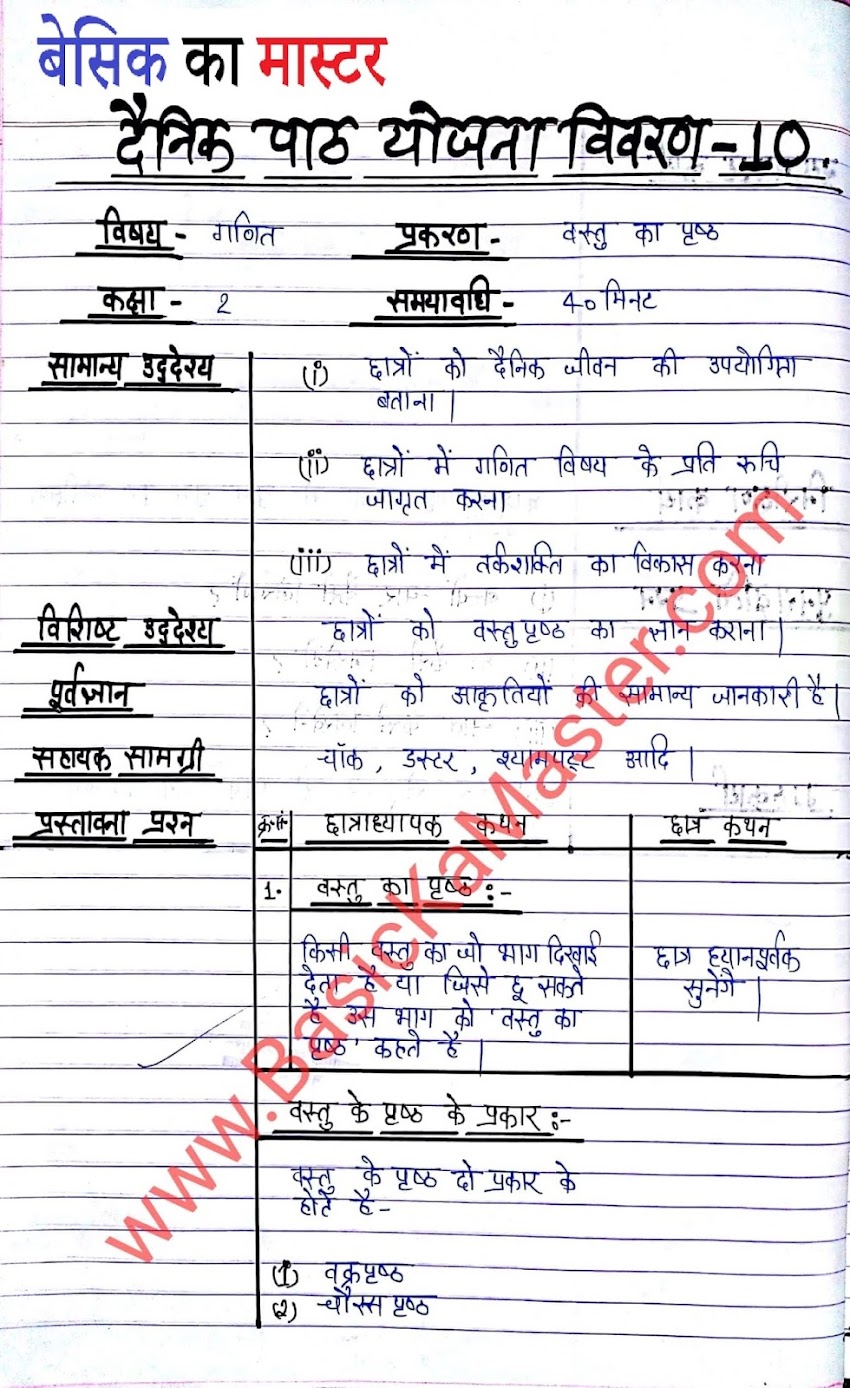 बेसिक का मास्टर
दैनिक पाठ योजना विवरण-10.
विषय - गणित प्रकरण - वस्तु का पृष्ठ
कक्षा - 2 समयावधि - 40 मिनट
सामान्य उद्देश्य (i) छात्रों को दैनिक जीवन की उपयोगिता
बताना |
(ii) छात्रों में गणित विषय के प्रति रुचि
जागृत करना
(iii) छात्रों में तर्कशक्ति का विकास करना
विशिष्ट उद्देश्य छात्रों को वस्तु पृष्ठ का ज्ञान कराना |
पूर्वज्ञान छात्रों को आकृतियों की सामान्य जानकारी है |
सहायक सामग्री चॉक, डस्टर, श्यामपट्ट आदि |
प्रस्तावना प्रश्न क्र०सं० छात्राध्यापक कथन छात्र कथन
1. वस्तु का पृष्ठ :-
किसी वस्तु का जो भाग दिखाई
देता है या जिसे छू सकते छात्र ध्यानपूर्वक
है उस भाग को 'वस्तु का सुनेंगे |
पृष्ठ' कहते है |
वस्तु के पृष्ठ के प्रकार :-
वस्तु के पृष्ठ दो प्रकार के
होते है -
(1) वक्रपृष्ठ
(2) चौरस पृष्ठ
www.BasicKaMaster.com